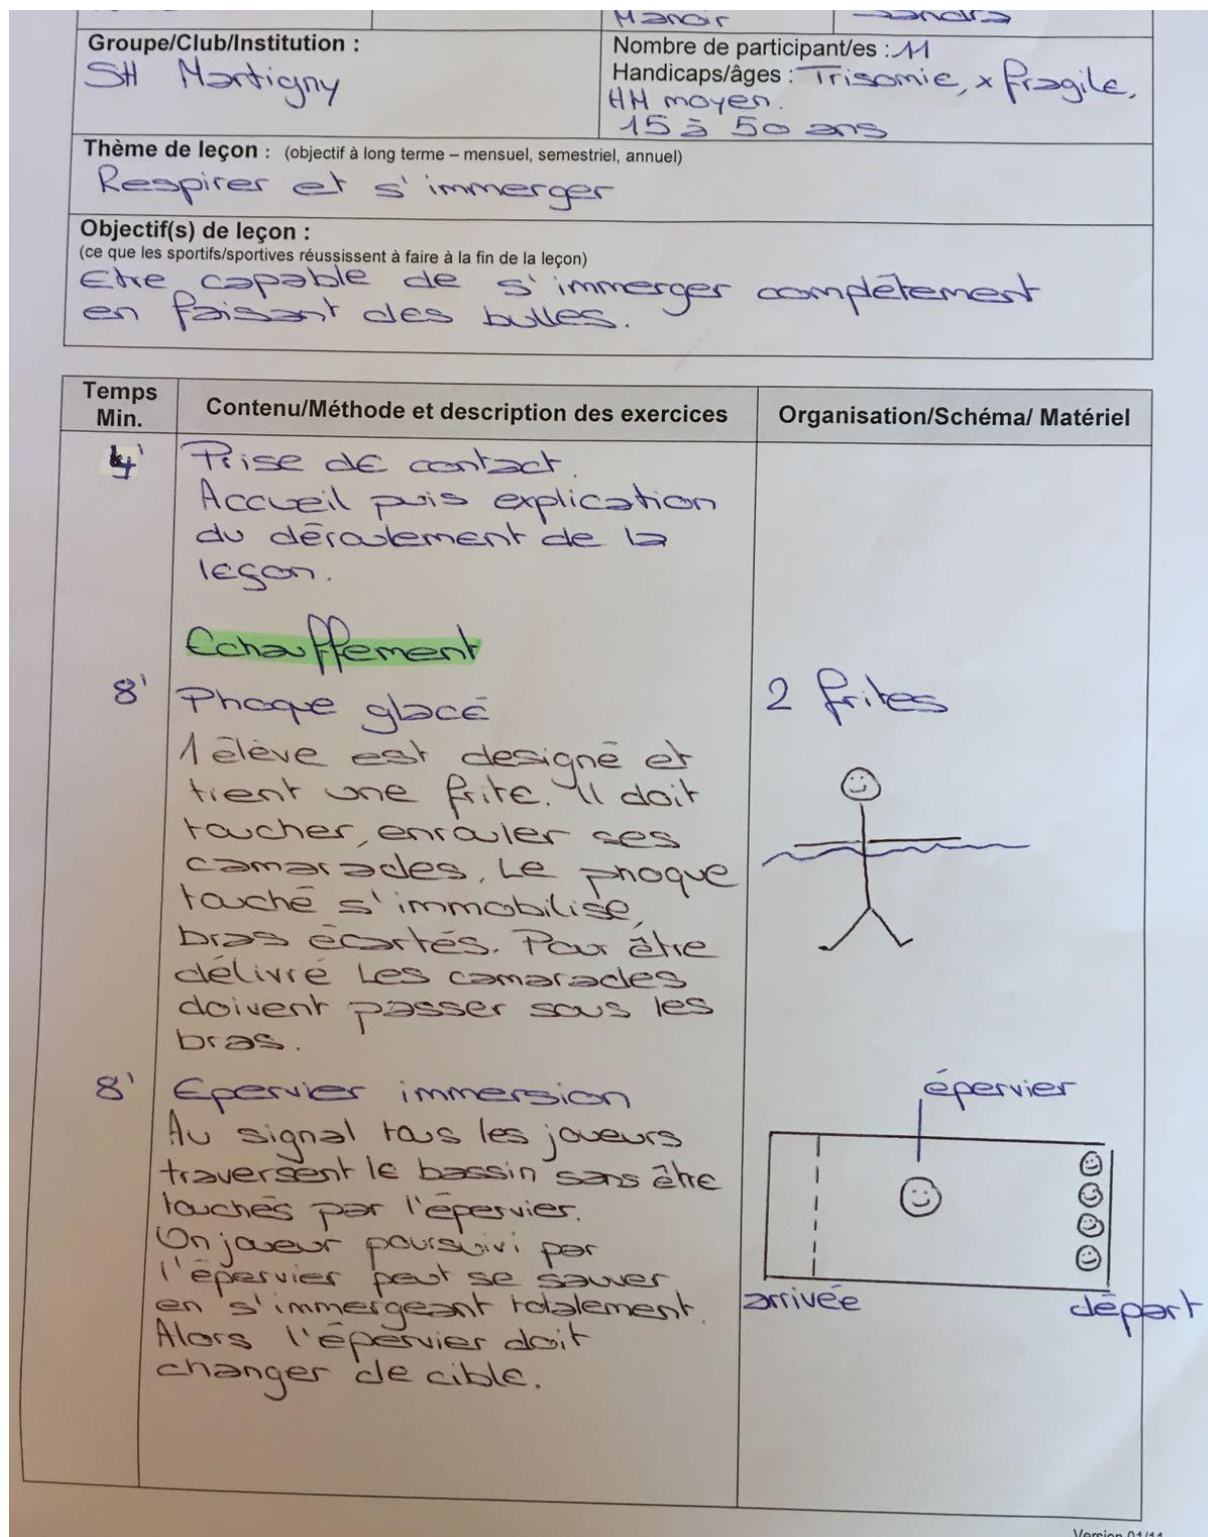 Manoir
Sandra
Groupe/Club/Institution :
SH Martigny
Nombre de participant/es : 11
Handicaps/âges : Trisomie, x fragile,
HM moyen.
15 à 50 ans
Thème de leçon : (objectif à long terme – mensuel, semestriel, annuel)
Respirer et s'immerger
Objectif(s) de leçon :
(ce que les sportifs/sportives réussissent à faire à la fin de la leçon)
Etre capable de s'immerger complètement
en faisant des bulles.
Temps
Min.
Contenu/Méthode et description des exercices
Organisation/Schéma/ Matériel
4'
Prise de contact.
Accueil puis explication
du déroulement de la
leçon.
Echauffement
8'
Phoque glacé
2 frites
1 élève est designé et
tient une frite. Il doit
toucher, enrouler ses
camarades. Le phoque
touché s'immobilise,
bras écartés. Pour être
délivré Les camarades
doivent passer sous les
bras.
8'
Epervier immersion
épervier
Au signal tous les joueurs
traversent le bassin sans être
touchés par l'épervier.
Un joueur poursuivi par
l'épervier peut se sauver
en s'immergeant totalement.
Alors l'épervier doit
changer de cible.
arrivée
départ
Version 01/11